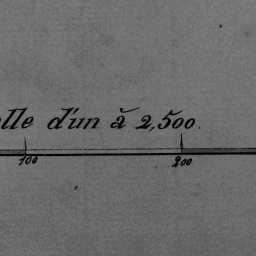 elle d'un à 2,500.
100 200